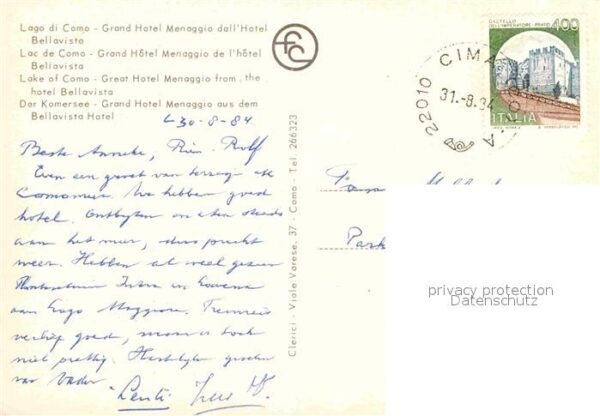 Lago di Como - Grand Hotel Menaggio dall'Hotel
Bellavista
Lac de Como - Grand Hôtel Menaggio de l'hôtel
Bellavista
Lake of Como - Great Hotel Menaggio from, the
hotel Bellavista
Der Komersee - Grand Hotel Menaggio aus dem
Bellavista Hotel
30-8-84
Beste Anneke, Rolf
Even een groet van terras
Comomeer. We hebben goed
hotel. Ontbijten en eten steeds
aan het meer, dus pracht
weer. Hebben al veel gezien
en
aan Lago Maggiore. Treinreis
verliep goed, maar is toch
niet prettig. Hartelijke groeten
van Vader
Clerici - Viale Varese, 37 - Como - Tel. 266323
CASTELLO
DELL'IMPERATORE - PRATO
400
ITALIA
22010 CIMA
31.-8.84
Park
privacy protection
Datenschutz